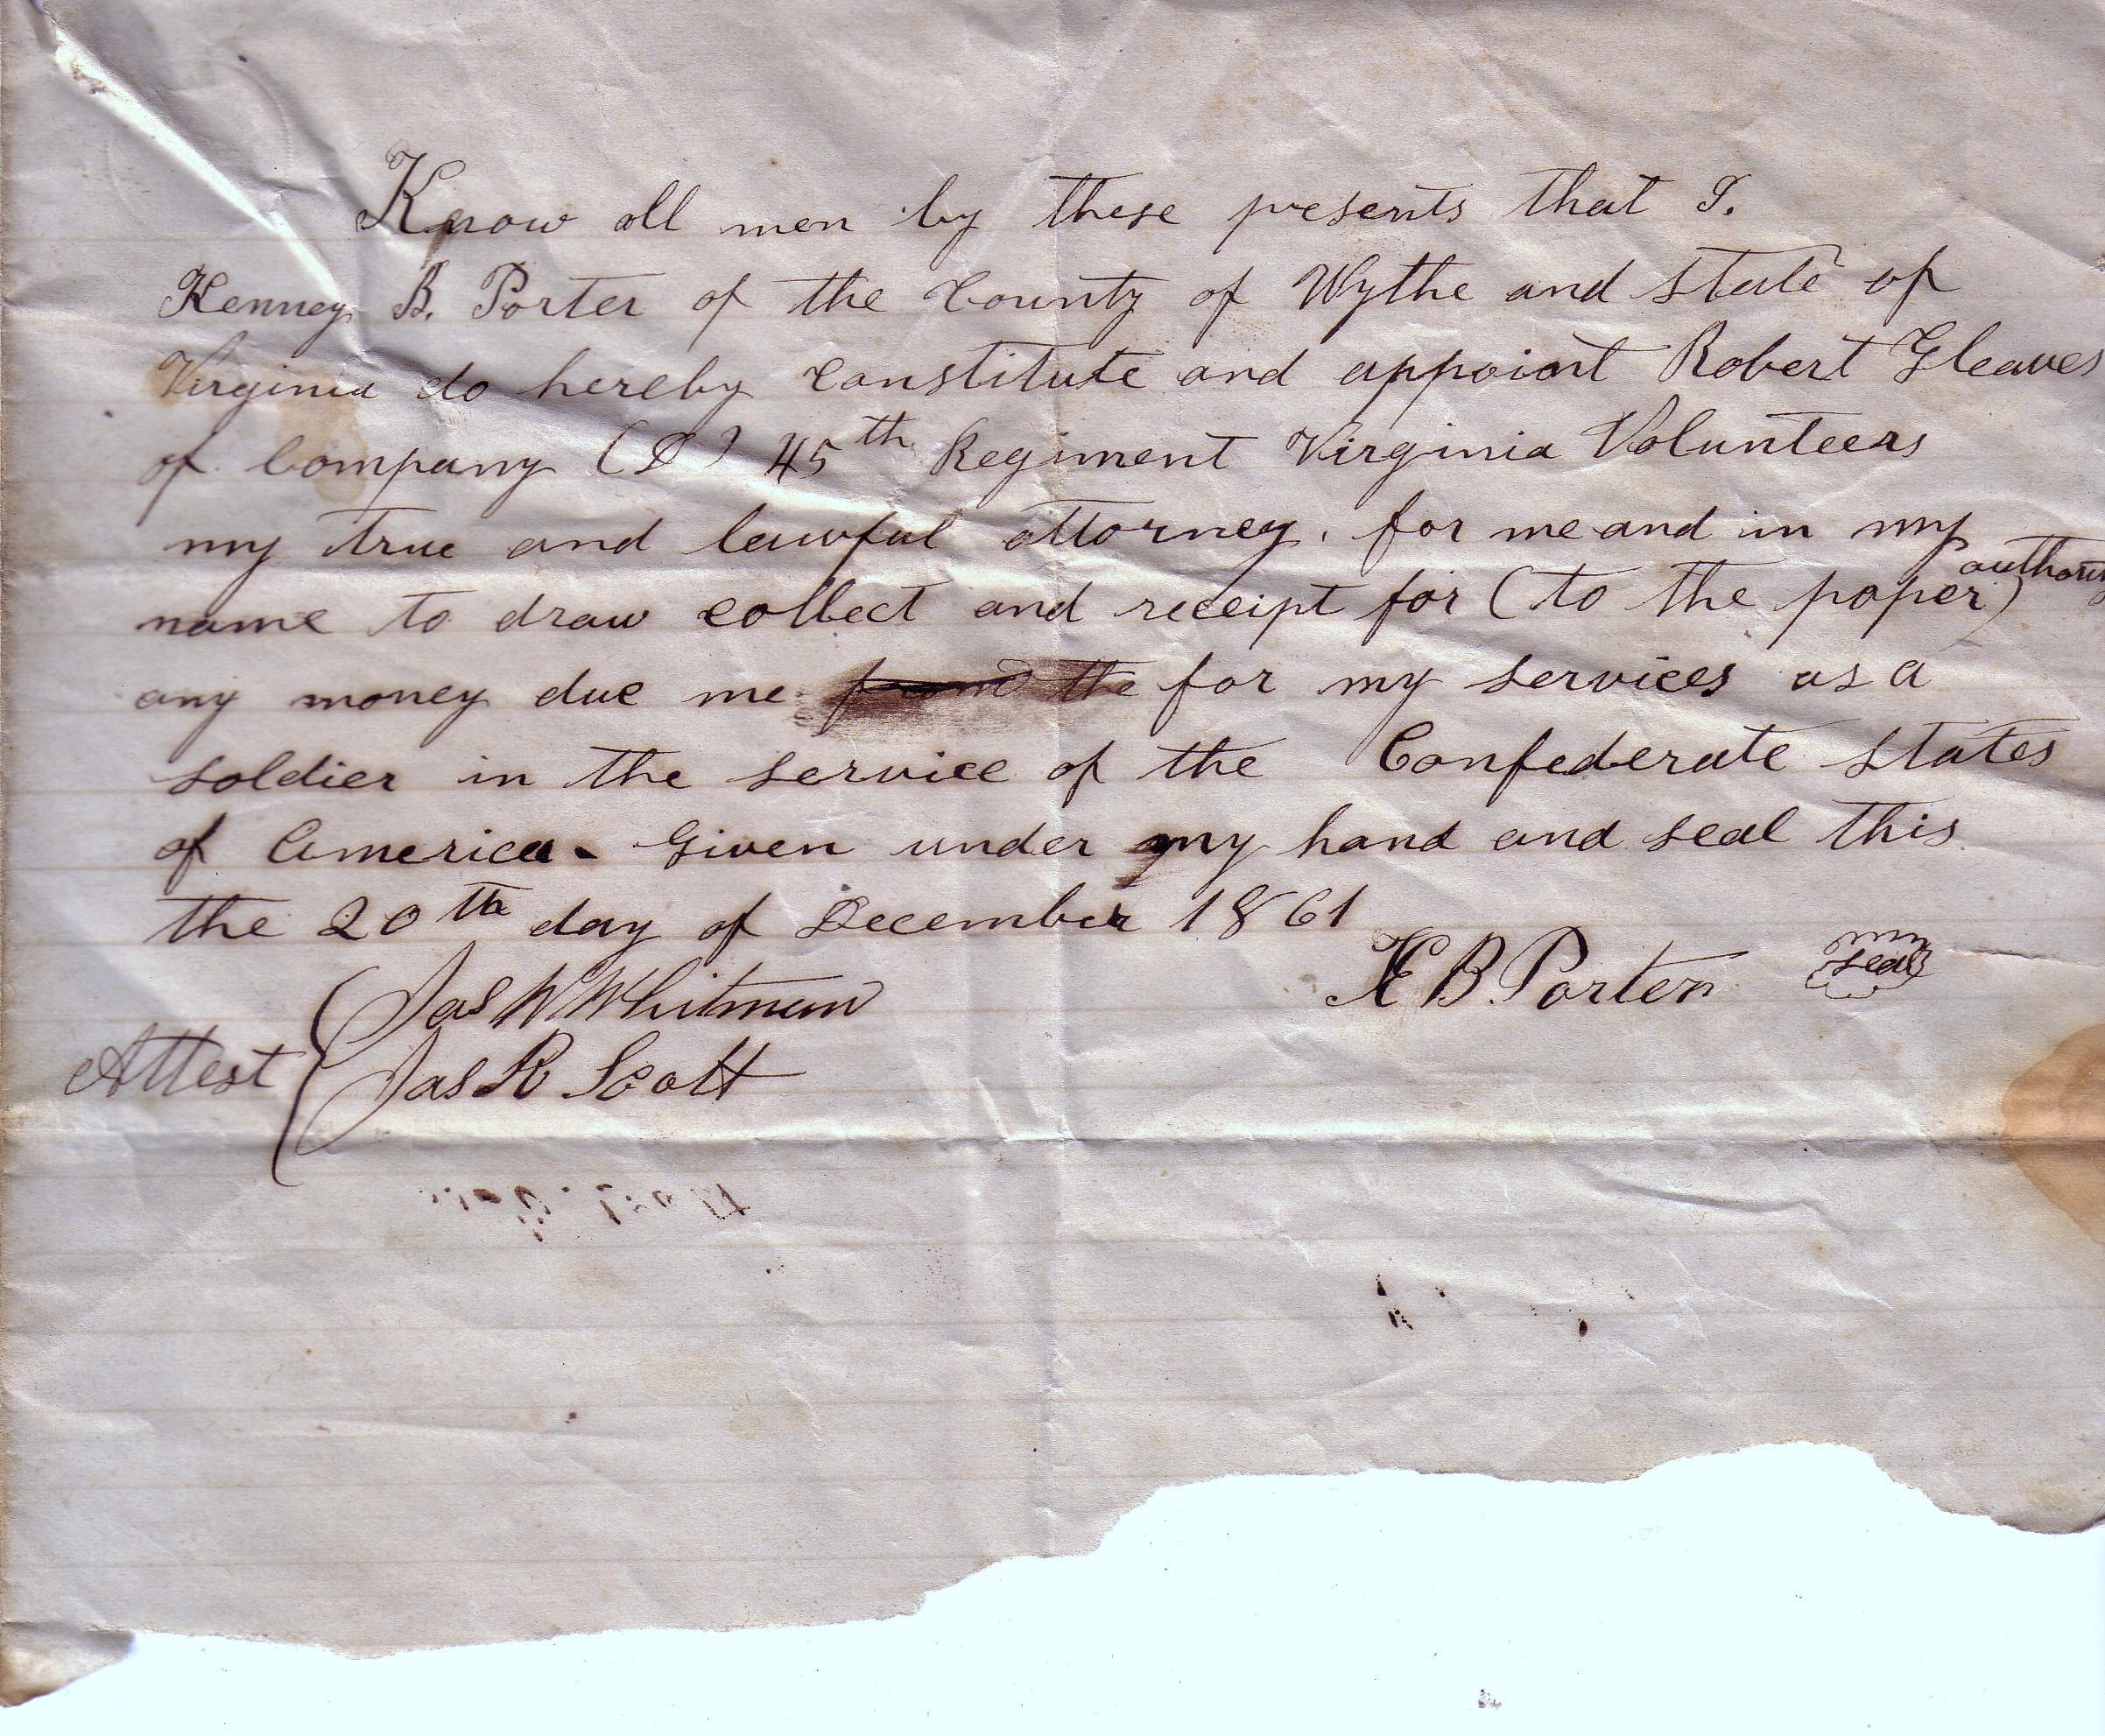 Know all men by these presents that I.
Kenney B. Porter of the County of Wythe and State of
Virginia do hereby constitute and appoint Robert Gleaves
of Company (D) 45th Regiment Virginia Volunteers
my true and lawful attorney, for me and in my
name to draw collect and receipt for (to the paper) authority
any money due me from the for my services as a
soldier in the service of the Confederate States
of America. Given under my hand and seal this
the 20th day of December 1861
K B. Porter seal
Attest
Jas W Whitman
Jas R Scott